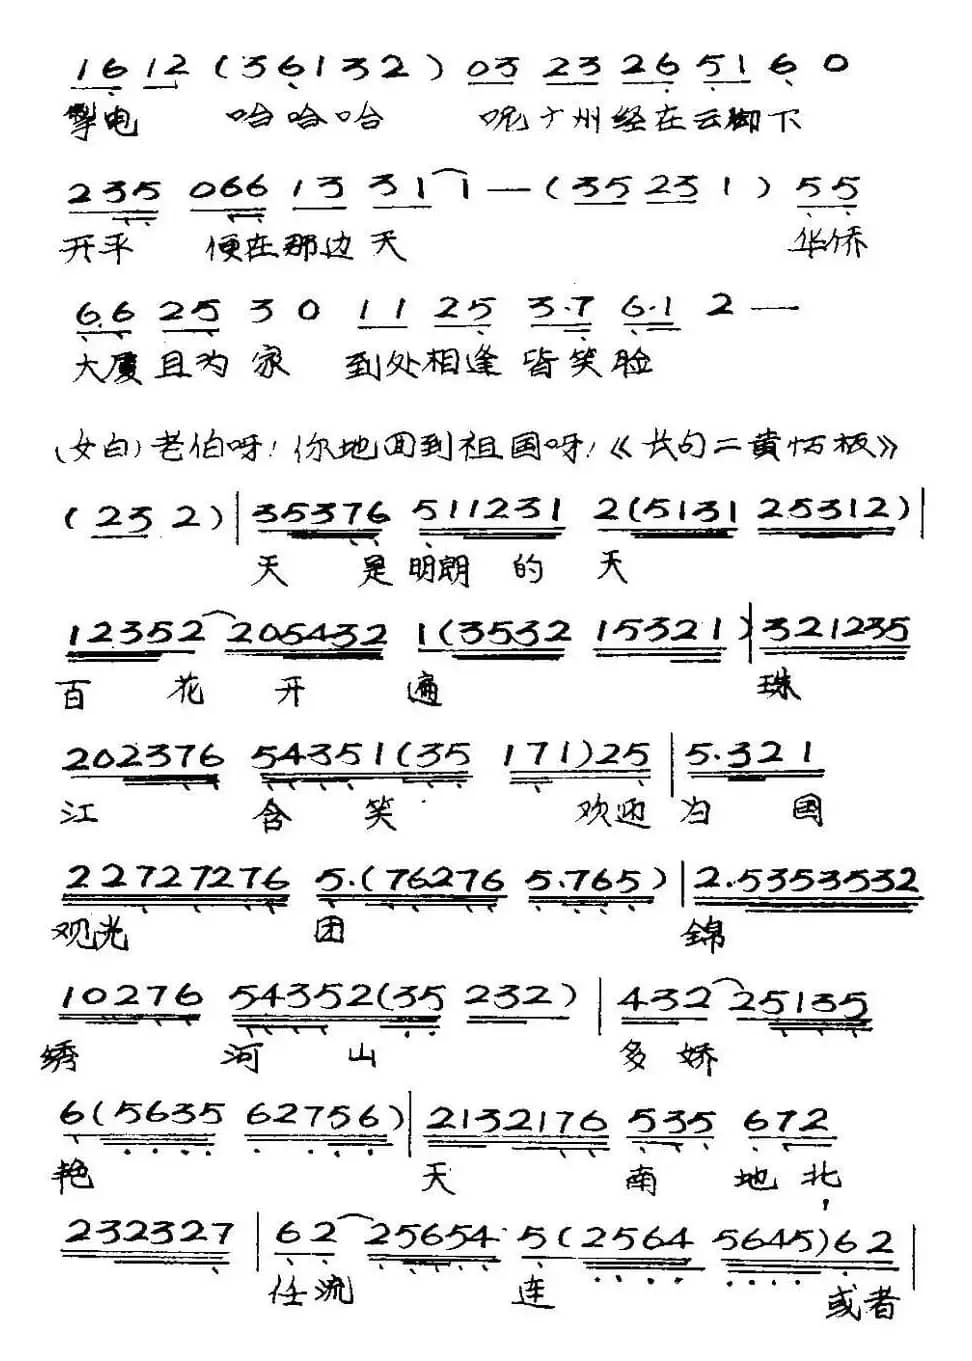 1 6 1 2 ( 3 6 1 3 2 ) 0 3 2 3 2 6 5 1 6 0
掣电 哈哈哈 呢广州经在云脚下
2 3 5 0 6 6 1 3 3 1 1 — ( 3 5 2 3 1 ) 5 5
开平 便在那边天 华侨
6. 6 2 5 3 0 1 1 2 5 3 · 7 6 · 1 2 —
大厦且为家 到处相逢皆笑脸
(女白) 老伯呀! 你地回到祖国呀! 《长句二黄慢板》
( 2 3 2 ) | 3 5 3 7 6 5 1 1 2 3 1 2 ( 5 1 3 1 2 5 3 1 2 ) |
天 是明朗 的 天
1 2 3 5 2 2 0 5 4 3 2 1 ( 3 5 3 2 1 5 3 2 1 ) | 3 2 1 2 3 5
百 花 开 遍 珠
2 0 2 3 7 6 5 4 3 5 1 ( 3 5 1 7 1 ) 2 5 | 5 · 3 2 1
江 含 笑 欢迎 归 国
2 2 7 2 7 2 7 6 5 · ( 7 6 2 7 6 5 · 7 6 5 ) | 2 · 5 3 5 3 5 3 2
观光 团 锦
1 0 2 7 6 5 4 3 5 2 ( 3 5 2 3 2 ) | 4 3 2 2 5 1 3 5
绣 河 山 多 娇
6 ( 5 6 3 5 6 2 7 5 6 ) | 2 1 3 2 1 7 6 5 3 5 6 7 2
艳 天 南 地 北,
2 3 2 3 2 7 | 6 2 2 5 6 5 4 5 ( 2 5 6 4 5 6 4 5 ) 6 2 |
任流 连 或者